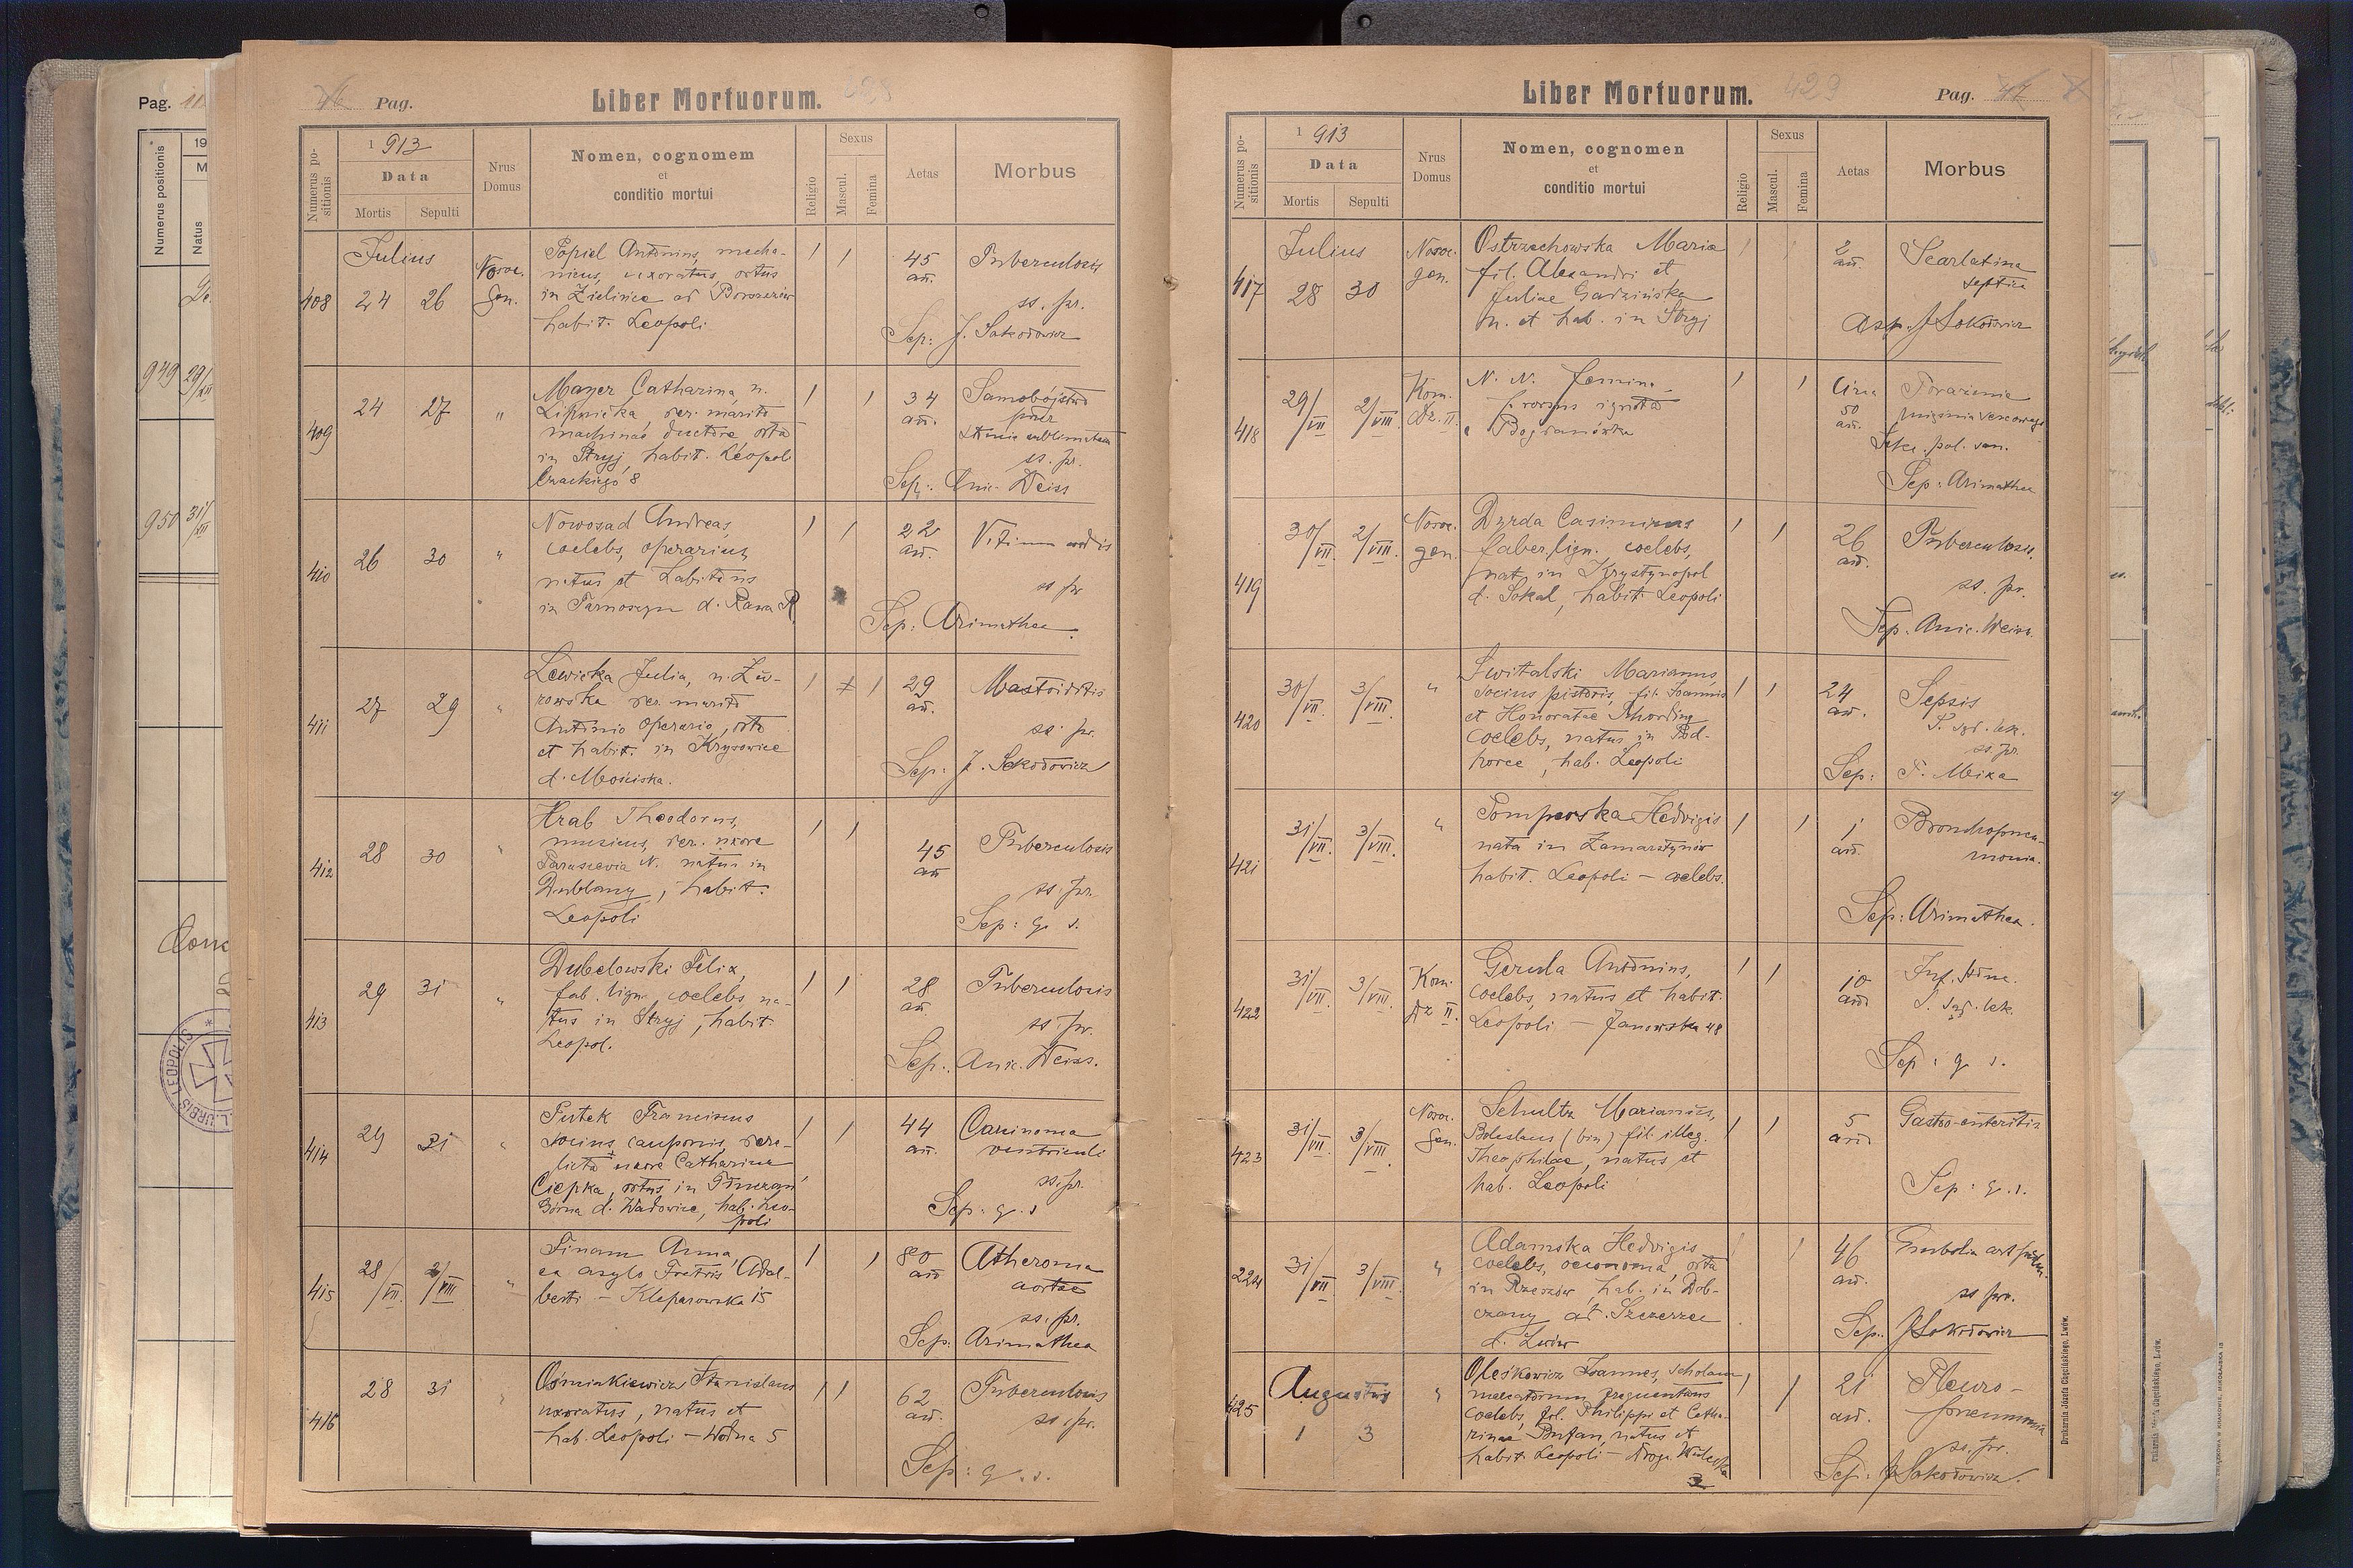 Pag.
Numerus positionis
19
M
Natus
949 29/XII
950 31/XII
LEOPOLIS
46 Pag.
Liber Mortuorum.
Numerus positionis
1913
Data
Mortis Sepulti
Nrus Domus
Nomen, cognomem
et
conditio mortui
Religio
Sexus
Mascul.
Femina
Aetas
Morbus
Julius
408 24 26
Nosoc. gen.
Popiel Antonius, mecha-
nicus, uxoratus, ortus
in Zielińce ad Borszczów
habit. Leopoli
1 1
45 an.
Tuberculosis
ss. pr.
Sep: J. Sokołowicz
409 24 27 "
Mayer Catharina, n.
Lipnicka, rer. marito
machinae ductore orta
in Stryj, habit. Leopoli
Czackiego 8
1 1
34 an.
Samobójstwo
przez
ss. pr.
Sep: Anic. Weiss
410 26 30 "
Nowosad Andreas,
coelebs, operarius,
natus et habitans
in Tarnoszyn d. Rawa R.
1 1
22 an.
Vitium cordis
ss pr
Sep: Arimathea
411 27 29 "
Lewicka Julia, n. Żu-
rowska rer. marito
Antonio operario, orta
et habit. in Krysowice
d. Mościska.
1 1
29 an.
Mastoiditis
ss. pr.
Sep: J. Sokołowicz
412 28 30 "
Hrab Theodorus,
musicus, rer. uxore
Parascevia N. natus in
Dublany, habit.
Leopoli
1 1
45 an
Tuberculosis
ss. pr.
Sep: g. s.
413 29 31 "
Dubelowski Felix,
fab. lign. coelebs, na-
tus in Stryj, habit.
Leopol.
1 1
28 an.
Tuberculosis
ss. pr.
Sep: Anic. Weiss.
414 29 31 "
Putek Franciscus
socius cauponis, rere-
licta uxore Catharina
Ciepka, ortus in
Górna d. Wadowice, hab. Leo-
poli
1 1
44 an.
Carcinoma
ventriculi
ss. pr.
Sep: g. s
415 28/VII 2/VIII "
Finam Anna,
ex asylo Fratris Adal-
berti - Kleparowska 15
1 1
80 an
Atheroma
aortae
ss. pr.
Sep: Arimathea
416 28 31 "
Ośmiakiewicz Stanislaus
uxoratus, natus et
hab. Leopoli - Wodna 5
1 1
62 an.
Tuberculosis
ss. pr.
Sep: g. s.
Liber Mortuorum. 429
Pag. 47
Numerus positionis
1913
Data
Mortis Sepulti
Nrus Domus
Nomen, cognomen
et
conditio mortui
Religio
Sexus
Mascul.
Femina
Aetas
Morbus
Julius
417 28 30
Nosoc. gen.
Ostrzechowska Maria
fil. Alexandri et
Juliae Gadzińska
n. et hab. in Stryj
1 1
2 an.
Scarlatina
septica
Asp. J Sokołowicz
418 29/VII 2/VIII
Kom. Dz. II.
N. N. femina
prorsus ignota
Bogdanówka
1 1
Circa 50 an.
Porażenie
mięśnia sercowego
Sep: Arimathea
419 30/VII 2/VIII.
Nosoc. gen.
Dyrda Casimirus
faber lign. coelebs,
nat. in Krystynopol
d. Sokal, habit. Leopoli
1 1
26 an.
Tuberculosis.
ss. pr.
Sep. Anic. Weiss.
420 30/VII. 3/VIII. "
Switalski Marianus,
socius pistoris, fil. Joannis
et Honoratae
coelebs, natus in Pod-
horce, hab. Leopoli
1 1
24 an.
Sepsis
P. sąd. lek.
ss. pr.
Sep: F. Meixa
421 31/VII. 3/VIII. "
Pomperska Hedvigis
nata in Zamarstynów
habit. Leopoli - coelebs.
1 1
1 an.
Bronchopneu-
monia.
Sep: Arimathea.
422 31/VII. 3/VIII.
Kom. Dz II.
Gerula Antonius,
coelebs, natus et habit.
Leopoli - Janowska 48
1 1
10 an.
P. sąd. lek.
Sep: g s.
423 31/VII. 3/VIII.
Nosoc. Gen.
Schultz Marianus,
Boleslaus (bin) fil. illeg.
Theophilae, natus et
hab. Leopoli
1 1
5 an.
Gastro-enteritis
Sep: g. s.
224 31/VII 3/VIII "
Adamska Hedvigis
coelebs, oeconoma, orta
in Rzeszów, hab. in Dob-
rzany ad. Szczerzec
d. Lwów
1 1
46 an.
Embolia art pulm.
ss pr.
Sep. J Sokołowicz
Augustus
425 1 3 "
Oleśkowicz Joannes, scholam
mercatorum frequentans
coelebs, fil. Philippi et Catha-
rinae Butan, natus et
habit. Leopoli - Droga Wulecka
3
1 1
21 an.
Pleuro-
pneumonia
ss. pr.
Sep: J Sokołowicz.
Drukarnia Józefa Chęcińskiego, Lwów.